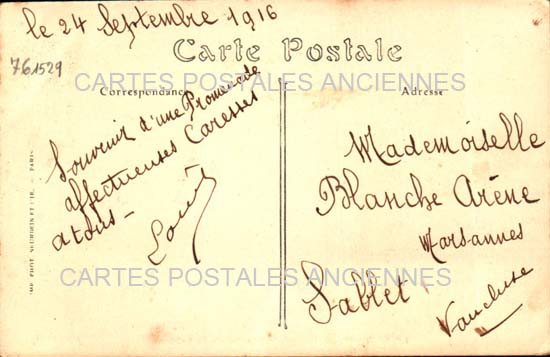 le 24 Septembre 1916
Carte Postale
761529
CARTES POSTALES ANCIENNES
Correspondance
Adresse
Souvenir d'une Promenade
affectueuses Caresses
a tous -
Louise
Mademoiselle
Blanche Arène
Marsannes
Sablet
Vaucluse
CARTES POSTALES ANCIENNES